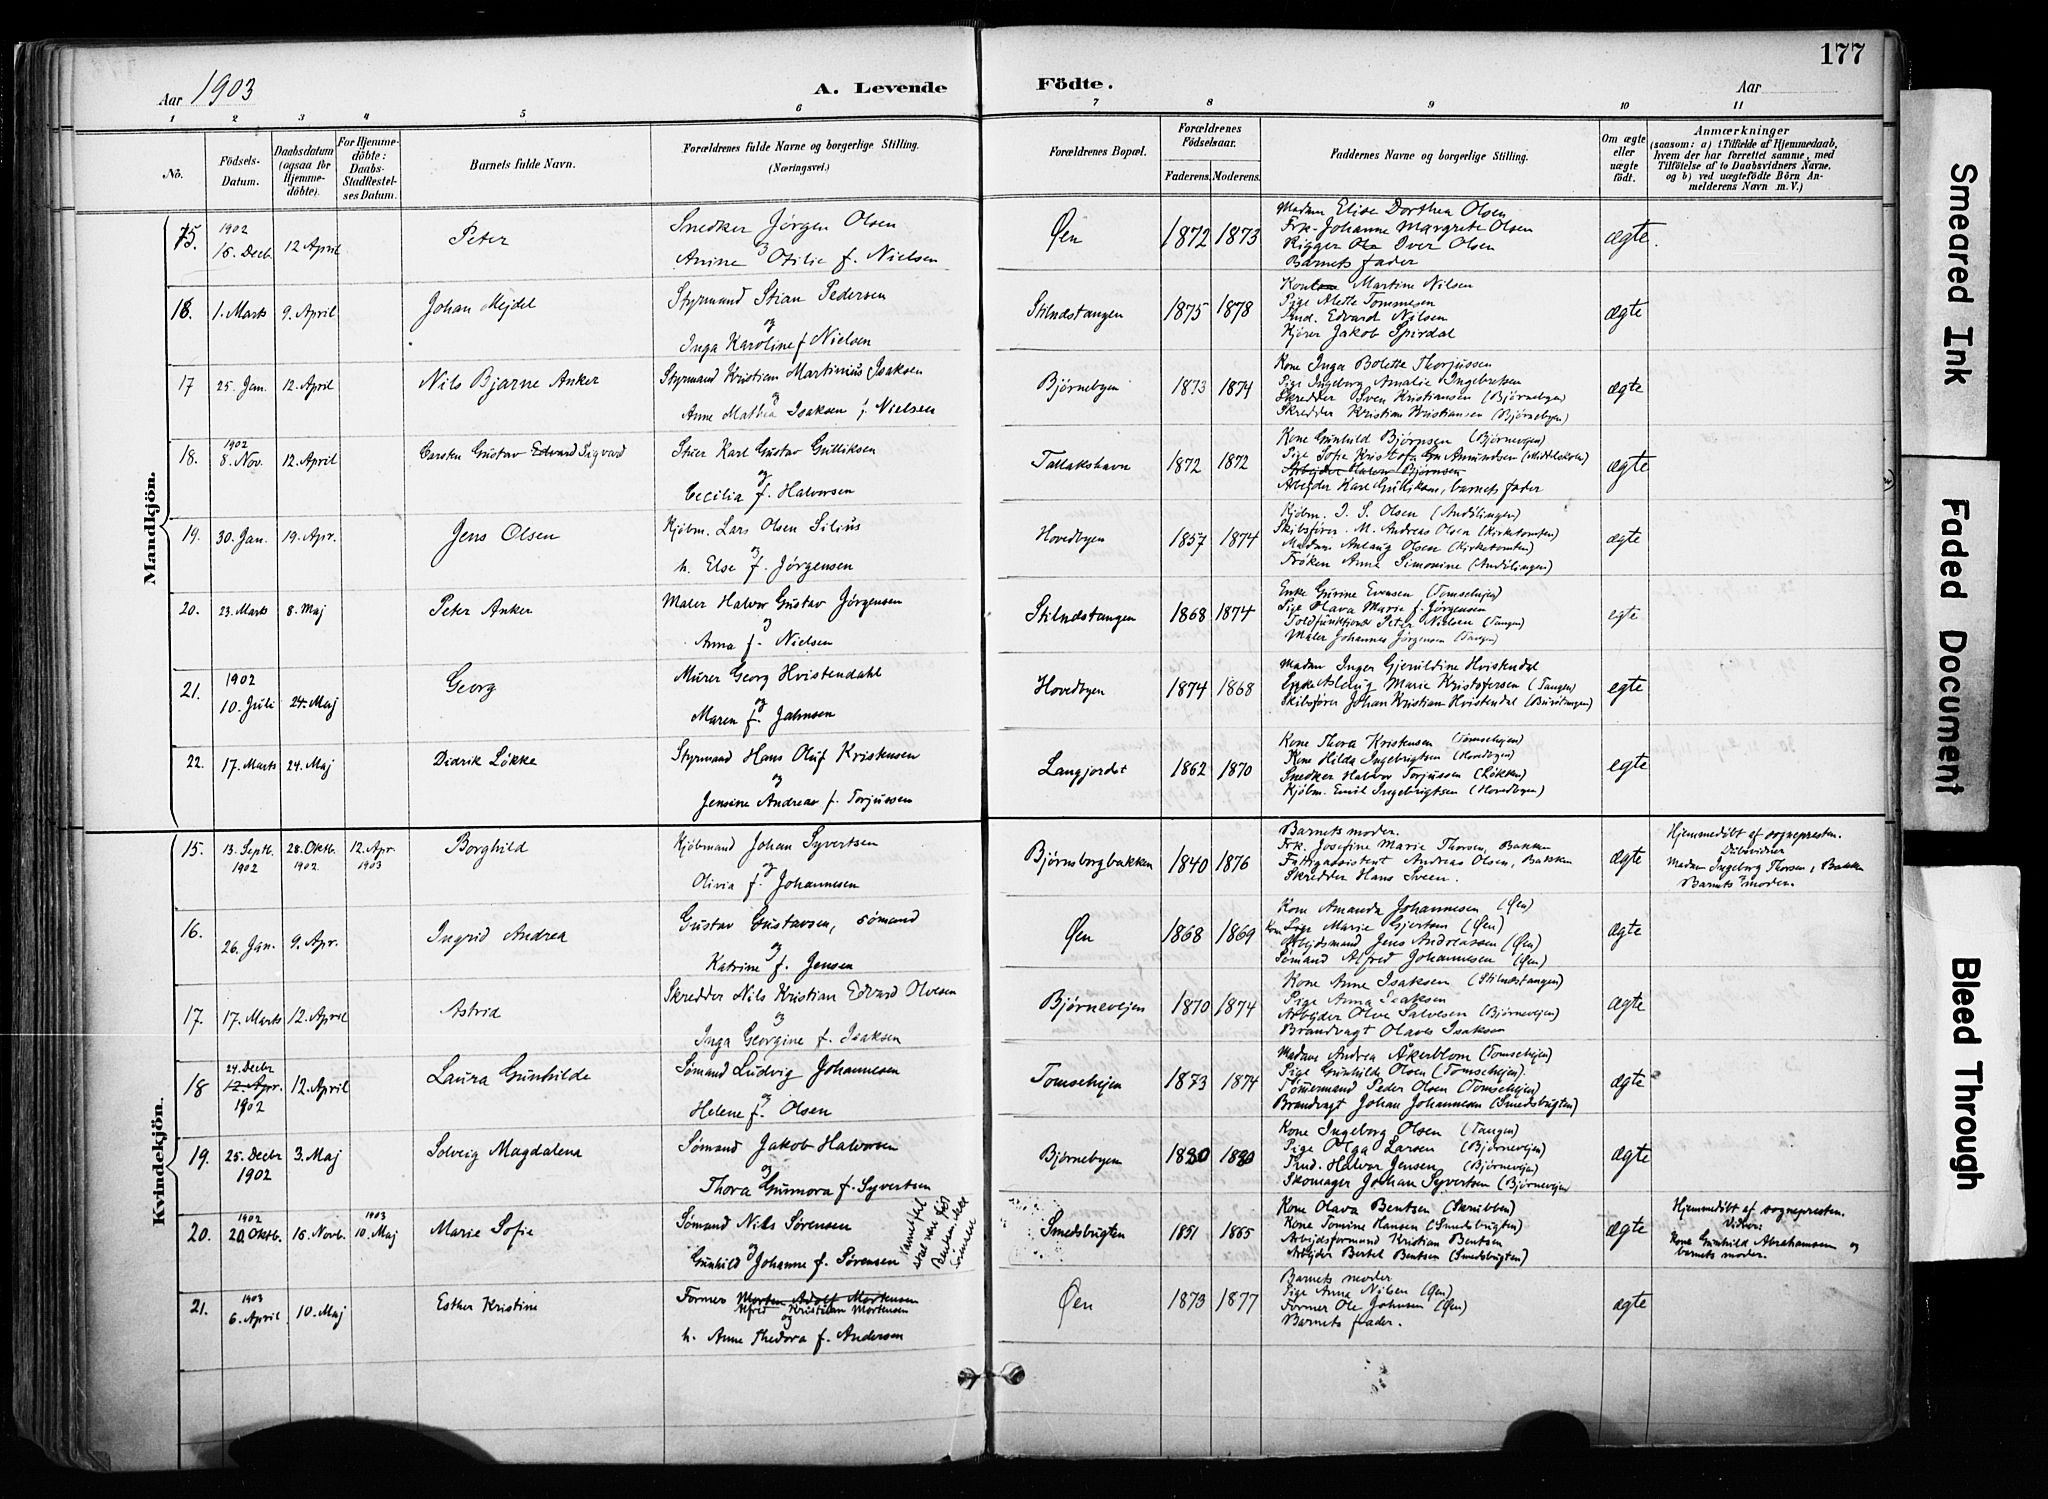 177
Aar 1903
A. Levende Födte.
Aar
1 2 3 4 5 6 7 8 9 10 11
No.
Födsels-Datum.
Daabsdatum (ogsaa for Hjemme-döbte).
For Hjemme-döbte: Daabs-Stadfæstel-ses Datum.
Barnets fulde Navn.
Forældrenes fulde Navne og borgerlige Stilling.
(Næringsvei.)
Forældrenes Bopæl.
Forældrenes Födselsaar.
Faderens. Moderens.
Faddernes Navne og borgerlige Stilling.
Om ægte eller uægte födt.
Anmærkninger
(saasom: a) i Tilfælde af Hjemmedaab, hvem der har forrettet samme, med Tilföielse af to Daabsvidners Navne. og b) ved uægtefödte Börn An-melderens Navn m. V.)
Mandkjön.
15. 1902 16. Decb. 12 April Peter
Snedker Jørgen Olsen
og
Anine Otilie f. Nielsen
Øen 1872 1873
Madam Elise Dorthea Olsen
Frk. Johanne Margrete Olsen
Rigger Iver Olsen
Barnets fader
ægte.
16. 1. Marts 9. April Johan Mejdel
Styrmand Stian Pedersen
og
Inga Karoline f. Nielsen
Stilndstangen 1875 1878
Kone Martine Nilsen
Pige Alette Tommesen
Edvard Nilsen
Kjører Jakob Spirdal
ægte
17 25. Jan. 12. April Nils Bjarne Anker
Styrmand Kristian Martinius Isaksen
og
Anne Mathea Isaksen f. Nielsen
Bjørnebyen 1873 1874
Kone Inga Bolette Thorjussen
Pige Ingeborg Amalie Ingebretsen
Skredder Sven Kristiansen (Bjørnebyen)
Skredder Kristian Kristiansen (Bjørnebyen)
ægte
18. 1902 8. Nov. 12. April Carsten Gustav Edvard Sigvard
Stuer Karl Gustav Gulliksen
og
Cecilia f. Halvorsen
Tallakshavn 1872 1872
Kone Gunhild Bjørnsen (Bjørnevejen)
Pige Sofie Amundsen (Middelskolen)
Arbejder Halvor Bjørnsen
Arbejder Karl Gulliksen, barnets fader
ægte
19. 30. Jan. 19. Apr. Jens Olsen
Kjøbm. Lars Olsen Silius
og
h. Else f. Jørgensen
Hovedbyen 1857 1874
Kjøbm. J. S. Olsen
Skibsfører M. Andreas Olsen (Kirketomten)
Madam Anlaug Olsen (Kirketomten)
Frøken Anna Simonine
ægte
20. 23. Marts 8. Maj Peter Anker
Maler Halvor Gustav Jørgensen
og
Anna f. Nielsen
Stilndstangen 1868 1874
Enke Gurine Evensen (Tomsehejen)
Pige Olava Marie f. Jørgensen
Toldfunktionær Peter Nielsen (Tangen)
Maler Johannes Jørgensen (Tangen)
egte
21. 1902 10. Juli 24. Maj Georg
Murer Georg Hvistendahl
og
Maren f. Jahnsen
Hovedbyen 1874 1868
Madam Inger Gjeruldine Hvistendal
Enke Aslaug Marie Kristofersen (Tangen)
Skibsfører Johan Kristian Hvistendal
egte
22. 17. Marts 24. Maj Didrik Løkke
Styrmand Hans Oluf Kristensen
og
Jensine Andrea f. Torjussen
Langjordet 1862 1870
Kone Thora Kristensen (Tomsehejen)
Kone Hilda Ingebrigtsen (Hovedbyen)
Snedker Halvor Torjussen (Løkken)
Kjøbm. Emil Ingebrigtsen (Hovedbyen)
egte
Kvindekjön.
15. 13. Septb. 1902 28. Oktb. 1902 12. Apr. 1903 Borghild
Kjøbmand Johan Syvertsen
og
Olivia f. Johannesen
Bjørnsborgbakken 1840 1876
Barnets moder.
Frk. Josefine Marie Thorsen, Bakken
Fattigassistent Andreas Olsen, Bakken
Skredder Hans Sveen.
ægte
Hjemmedøbt af sognepresten.
Dåbsvidner
Madam Ingeborg Thorsen, Bakken
Barnets moder.
16. 26. Jan. 9. Apr. Ingrid Andrea
Gustav Gustavsen, sømand
og
Katrine f. Jensen
Øen 1868 1869
Kone Amanda Johannesen (Øen)
Kone Pige Marie Gjertsen (Øen)
Arbejdsmand Jens Andreassen (Øen)
Sømand Alfred Johannesen (Øen)
ægte
17. 17. Marts 12. April Astrid
Skredder Nils Kristian Edvard Olvesen
og
Inga Georgine f. Isaksen
Bjørnevejen 1870 1874
Kone Anne Isaksen (Stilndstangen)
Pige Anna Isaksen
Arbejder Olve Salvesen (Bjørnevejen)
Brandvagt Olaves Isaksen
ægte
18 24. Decbr. 12. Apr. 1902 12. April Laura Gunhilde
Sømand Ludvig Johannesen
og
Helene f. Olsen
Tomsehejen 1873 1874
Madam Andrea Åkerblom (Tomsehejen)
Pige Gunhilde Olsen (Tomsehejen).
Tømmermand Peder Olsen (Tomsehejen)
Brandvagt Johan Johannesen (Smedsbugten)
ægte
19. 25. Decbr 1902 3. Maj Solveig Magdalena
Sømand Jakob Halvorsen
og
Thora Gunnora f. Syvertsen
Bjørnebyen 1880 1880
Kone Ingeborg Olsen (Tangen)
Pige Olga Larsen (Bjørnevejen)
Halvor Jensen (Bjørnevejen)
Skomager Johan Syvertsen (Bjørnevejen
ægte
20. 1902 20. Oktb. 16. Novb. 1903 10. Maj Marie Sofie
Sømand Nils Sørensen
og
Gunhild Johanne f. Sørensen
Smedsbugten 1851 1865
Kone Olava Bentsen (Skrubben)
Kone Tomine Hansen (Smedsbugten)
Arbejdsformand Kristian Bentsen
Arbejder Bertel Bentsen (Smedsbugten)
ægte
Hjemmedøbt af sognepresten.
Vidner:
Kone Gunhild Abrahamsen og
barnets moder.
21. 1903 6. April 10. Maj Esther Kristine
Former Morten Adolf Mortensen
Alfred Kristian Mortensen
og
h. Anne Thedora f. Andersen
Øen 1873 1877
Barnets moder
Pige Anna Nilsen (Øen)
Former Ole Johnsen (Øen)
Barnets fader.
ægte
Smeared Ink
Faded Document
Bleed Through